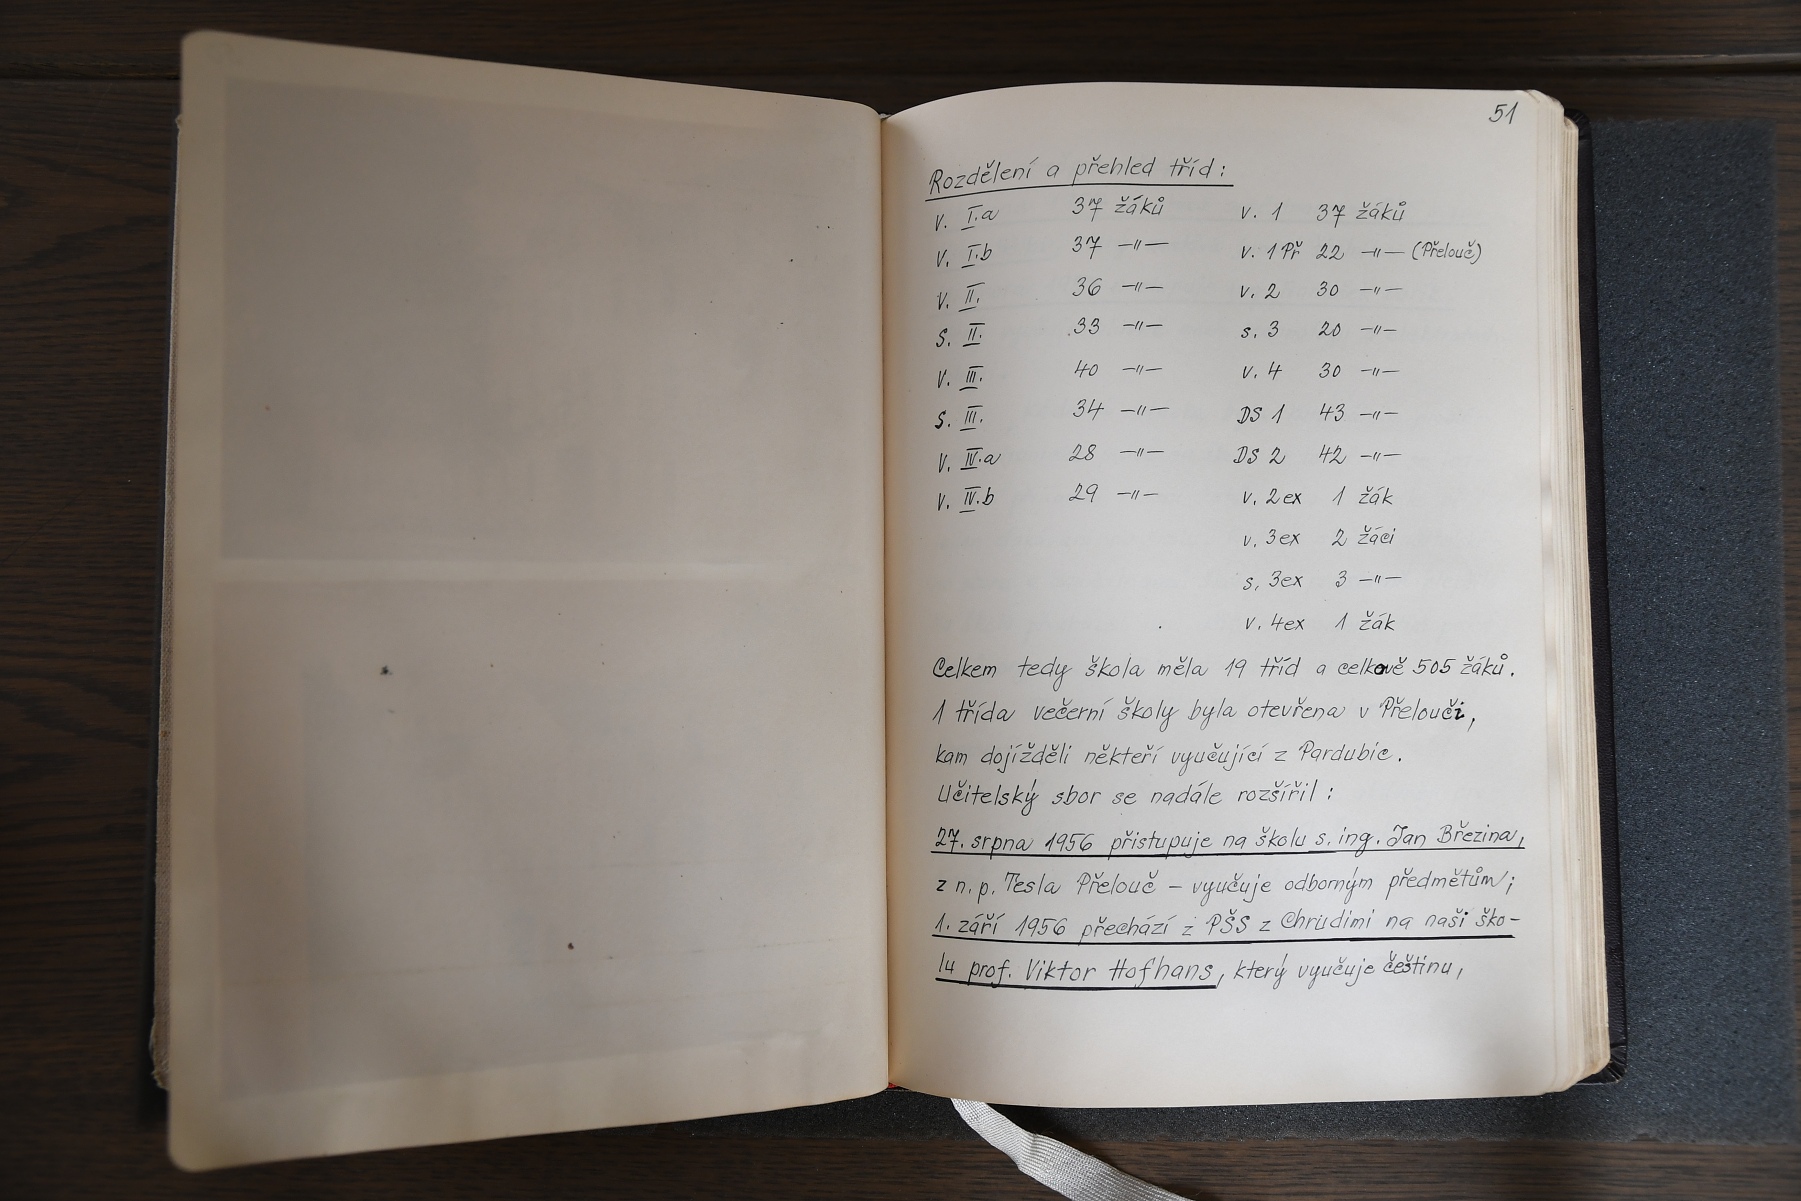 51
Rozdělení a přehled tříd:
V. I.a 37 žáků v. 1 37 žáků
V. I.b 37 —"— v. 1 Př 22 —"— (Přelouč)
V. II. 36 —"— v. 2 30 —"—
S. II. 33 —"— s. 3 20 —"—
V. III. 40 —"— v. 4 30 —"—
S. III. 34 —"— DS 1 43 —"—
V. IV.a 28 —"— DS 2 42 —"—
V. IV.b 29 —"— v. 2ex 1 žák
v. 3ex 2 žáci
s. 3ex 3 —"—
v. 4ex 1 žák
Celkem tedy škola měla 19 tříd a celkově 505 žáků.
1 třída večerní školy byla otevřena v Přelouči,
kam dojížděli někteří vyučující z Pardubic.
Učitelský sbor se nadále rozšířil:
27. srpna 1956 přistupuje na školu s. ing. Jan Březina,
z n. p. Tesla Přelouč – vyučuje odborným předmětům;
1. září 1956 přechází z PŠS z Chrudimi na naši ško-
lu prof. Viktor Hofhans, který vyučuje češtinu,